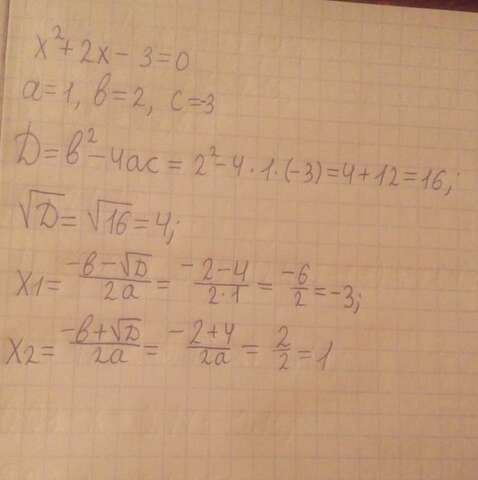 x²+2x-3=0
a=1, в=2, c=-3
D=в²-4ac=2²-4·1·(-3)=4+12=16;
√D=√16=4;
x1=(-в-√D)/2a=(-2-4)/2·1=-6/2=-3;
x2=(-в+√D)/2a=(-2+4)/2a=2/2=1